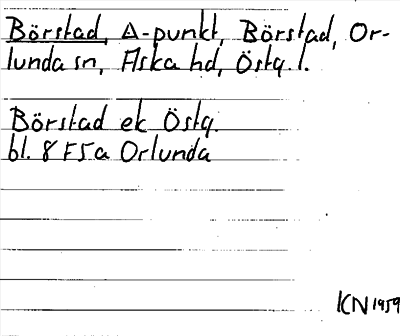 Börstad, Δ-punkt, Börstad, Or-
lunda sn, Aska hd, Östg. l.
Börstad ek Östg.
bl. 8 F5a Orlunda
KN 1959